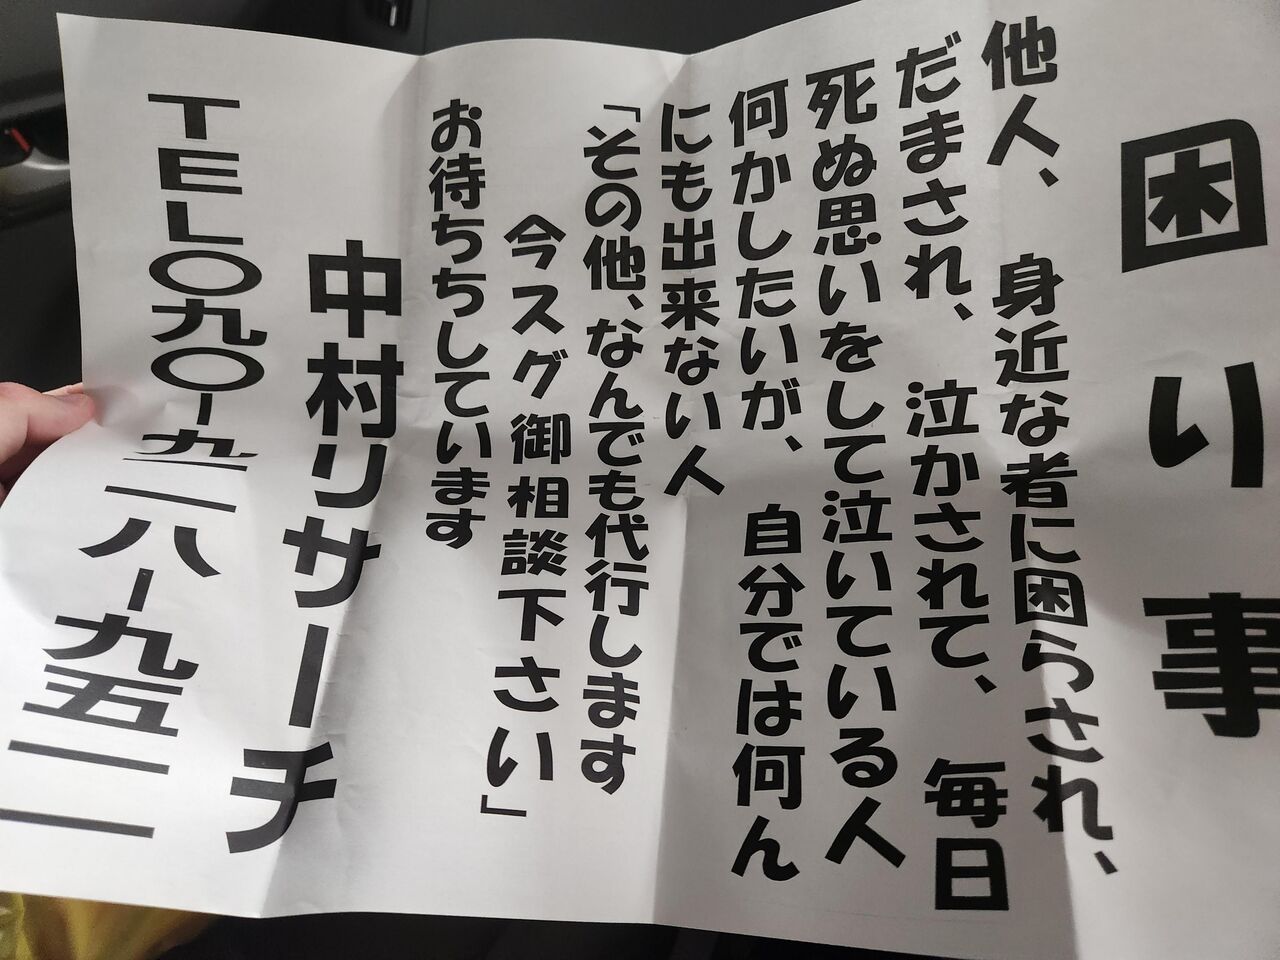 困り事
他人、身近な者に困らされ、
だまされ、泣かされて、毎日
死ぬ思いをして泣いている人
何かしたいが、自分では何ん
にも出来ない人
「その他、なんでも代行します
今スグ御相談下さい」
お待ちちしています
中村リサーチ
TEL〇九〇ー